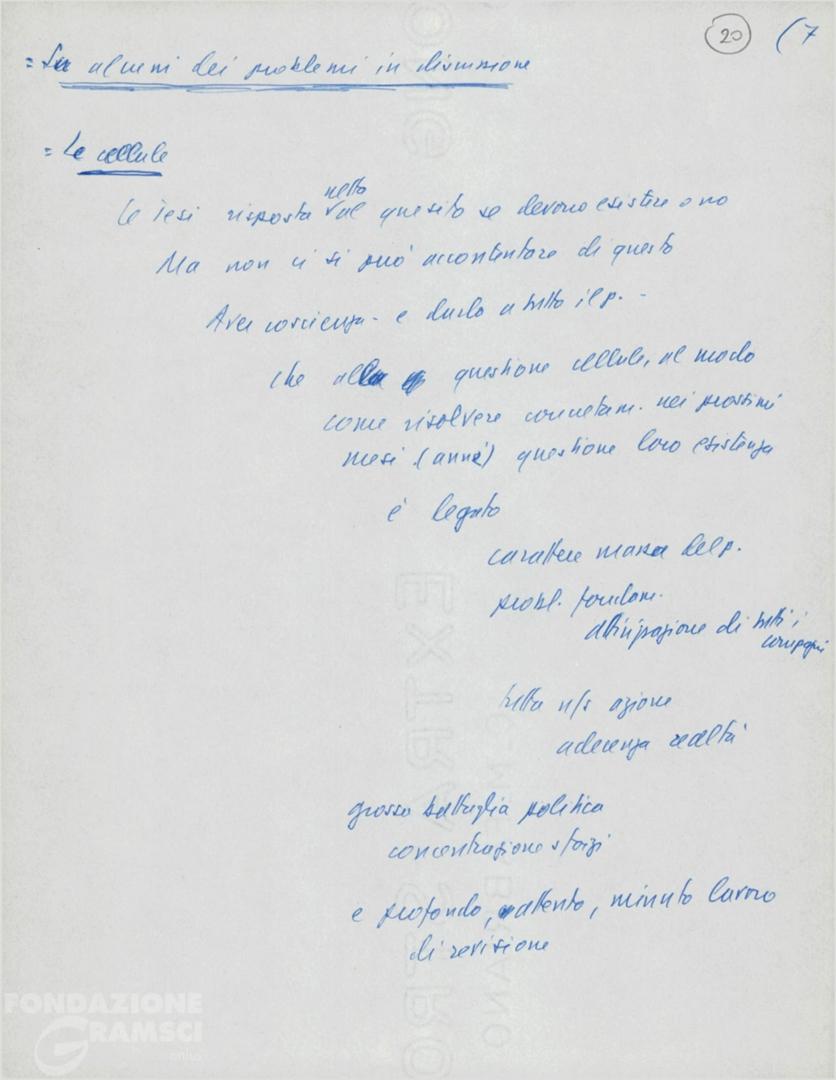 20 (7
= Su alcuni dei problemi in discussione
= Le cellule
netta
Le Tesi risposta al quesito se devono esistere o no
Ma non ci si può accontentare di questo
Aver coscienza - e darla a tutto il p. -
che alla questione cellule, al modo
come risolvere concretam. nei prossimi
mesi (anni) questione loro esistenza
è legato
carattere massa del p.
probl. fondam.
attivizzazione di tutti i
compagni
tutta n/s azione
aderenza realtà
grossa battaglia politica
concentrazione sforzi
e profondo, attento, minuto lavoro
di revisione
EXTRA
FONDAZIONE
GRAMSCI
onlus